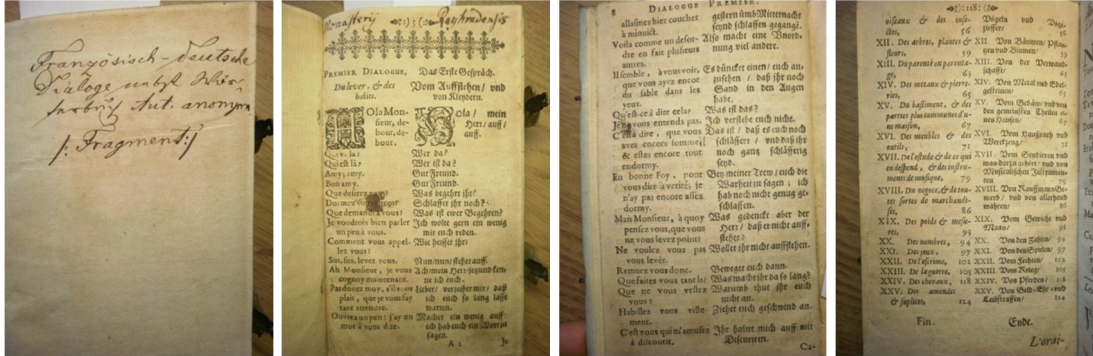 Französisch-deutsche
Dialoge nebst Wör-
terbuch Aut. anonym
/: Fragment :/
Monasterij Rayhradensis
PREMIER DIALOGUE.
Du lever, & des
habits.
HOla Mon-
sieur, de-
bout, de-
bout.
Qui va là?
Qui est là?
Amy, amy.
Bon amy.
Que desirez vous?
Que demandez vous?
Je voudrois bien parler
un peu à vous.
Comment vous appel-
lez vous?
Sus, sus, levez vous.
Ah Monsieur, je vous
cognoy maintenant.
Pardonez moy, s'il vous
plait, que je vous fay
tant attendre.
Ouvrez un peu: j'ay un
mot à vous dire.
Das Erste Gespräch.
Vom Auffstehen/ und
von Kleydern.
HOla/ mein
Herr/ auff/
auff.
Wer da?
Wer ist da?
Gut Freund.
Gut Freund.
Was begehrt ihr?
Schlaffet ihr noch?
Was ist ewer Begehren?
Ich wolte gern ein wenig
mit euch reden.
Wie heisset ihr?
Nun/nun/stehet auff.
Ach/mein Herr/jetzund ken-
ne ich euch.
lieber/ verzeihet mir/ daß
ich euch so lang lasse
warten.
Machet ein wenig auff:
ich hab euch ein Wort zu
sagen.
A 2
8 DIALOGUE PREMIER.
allasmes hier coucher
à minuict.
Voila comme un desor-
dre en fait plusieurs
autres.
Il semble, à vous voir,
que vous ayez encor
du sable dans les
yeux.
Qu'est-ce à dire cela?
Je ne vous entends pas.
C'est à dire, que vous
avez encore sommeil
& estes encore tout
endormy.
En bonne Foy, pour
vous dire la verité, je
n'ay pas encore assez
dormy.
Mais Monsieur, à quoy
pensez vous, que vous
ne vous levez point?
Ne voulez vous pas
vous lever?
Remuez vous donc.
Que faites vous tant là?
Que ne vous vestez
vous?
Habillez vous viste-
ment.
C'est vous qui m'amusez
à discourir.
gestern umb Mitternacht
seynd schlaffen gegangē.
Also macht eine Unord-
nung viel andere.
Es düncket einen/ euch an-
zusehen/ daß ihr noch
Sand in den Augen
habt.
Was ist das?
Ich verstehe euch nicht.
Das ist/ daß es euch noch
schläffert/ und daß ihr
noch gang schläfferig
seyd.
Bey meiner Trew/ euch die
Warheit zu sagen/ ich
hab noch nicht genug ge-
schlaffen.
Was gedenckt aber der
Herr/ daß er nicht auff-
stehet?
Wollet ihr nicht auffstehen.
Beweget euch dann.
Was macht ihr da so lang?
Warumb thut ihr euch
nicht an.
Ziehet euch geschwind an.
Ihr haltet mich auff mit
Discurriren.
118
oiseaux & des inse-
ctes, 56
XII. Des arbres, plantes &
fleurs, 59
XIII. Du parenté en parenta-
ge, 63
XIV. Des metaux & pierre-
ries, 65
XV. Du bastiment, & des
parties plus communes d'u-
ne maison, 67
XVI. Des meubles & des
outils, 71
XVII. De l'estude & de ce qui
en despend, & des instru-
ments de musique, 79
XVIII. Du negoce, & de tou-
tes sortes de marchandi-
ses, 86
XIX. Des poids & mesu-
res, 93
XX. Des nombres, 94
XXI. Des jeux, 97
XXII. De l'escrime, 102
XXIII. De la guerre, 103
XXIV. Des chevaux, 118
XXV. Des amendes
& suplices, 124
Fin.
Vögeln und
XII. Von Bäumen/ Pflan-
zen und Blumen/
XIII. Von der Verwand-
schafft/
XIV. Von Metal und Edel-
gesteinen/
XV. Vom Gebäu/und von
den gemeinsten Theilen ei-
nes Hauses/
XVI. Vom Haußrath und
Werckzeug/
XVII. Vom Studieren und
was darzu gehört/ und von
Musicalischen Instrumen-
ten
XVIII. Von Kauffmans Ge-
werb/ und von allerhand
wahren/
XIX. Vom Gewicht und
Maas/
XX. Von den Zahlen/
XXI. Von den Spielen/
XXII. Vom Fechten/
XXIII. Vom Krieg/
XXIV. Von Pferden/
XXV. Von Geld-
Leibstraffen/
Ende.
L'orai-